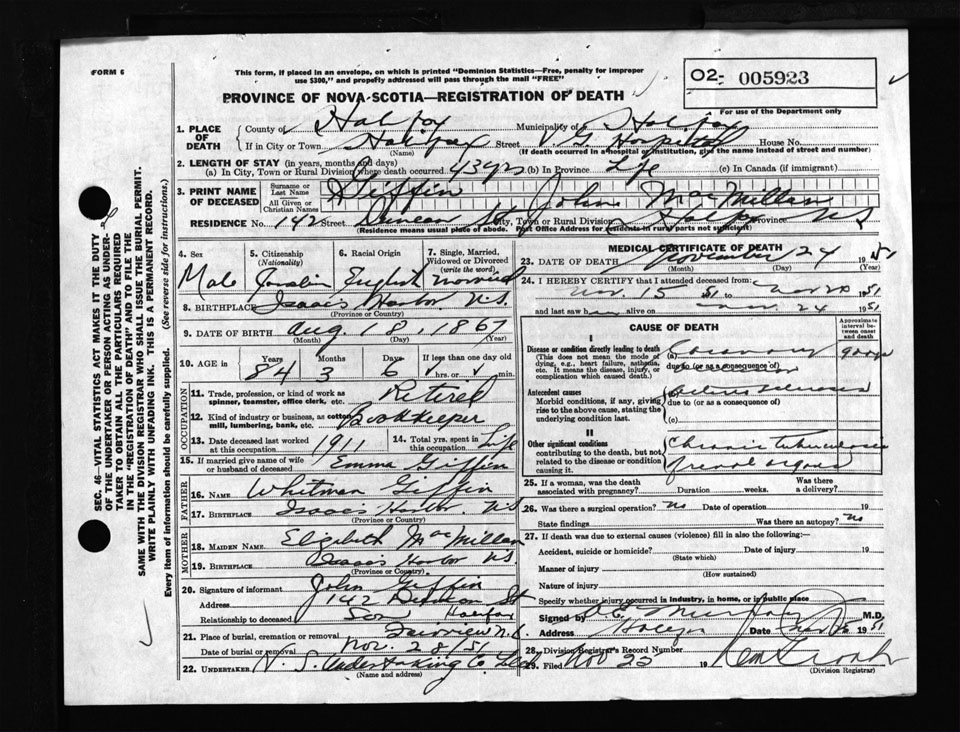 FORM 6
This form, if placed in an envelope, on which is printed "Dominion Statistics—Free, penalty for improper
use $300," and properly addressed will pass through the mail "FREE"
O2- 005923
PROVINCE OF NOVA SCOTIA—REGISTRATION OF DEATH
For use of the Department only
1. PLACE OF DEATH
County of Halifax Municipality of Halifax
If in City or Town Halifax Street V. G. Hospital House No.
(Name) (If death occurred in a hospital or institution, give the name instead of street and number)
2. LENGTH OF STAY (in years, months and days)
(a) In City, Town or Rural Division where death occurred 43 yrs (b) In Province Life (c) In Canada (if immigrant)
3. PRINT NAME OF DECEASED
Surname or Last Name Giffin
All Given or Christian Names John MacMillan
RESIDENCE No. 142 Street Duncan St. City, Town or Rural Division Halifax Province N.S.
(Residence means usual place of abode. Post Office Address for residents in rural parts not sufficient)
4. Sex
Male
5. Citizenship
(Nationality)
Canadian
6. Racial Origin
English
7. Single, Married,
Widowed or Divorced
(write the word)
Married
8. BIRTHPLACE Isaacs Harbor N.S.
(Province or Country)
9. DATE OF BIRTH Aug. 18, 1867
(Month) (Day) (Year)
10. AGE in Years Months Days If less than one day old
84 3 6 hrs. or min.
OCCUPATION
11. Trade, profession, or kind of work as
spinner, teamster, office clerk, etc. Retired
12. Kind of industry or business, as cotton
mill, lumbering, bank, etc. Bookkeeper
13. Date deceased last worked
at this occupation 1911
14. Total yrs. spent in
this occupation Life
15. If married give name of wife
or husband of deceased Emma Giffin
FATHER
16. NAME Whitman Giffin
17. BIRTHPLACE Isaacs Harbor N.S.
(Province or Country)
MOTHER
18. MAIDEN NAME Elizabeth MacMillan
19. BIRTHPLACE Isaacs Harbor N.S.
(Province or Country)
20. Signature of informant John Giffin
Address 142 Duncan St
Relationship to deceased Son Halifax
21. Place of burial, cremation or removal Fairview
Date of burial or removal Nov. 28/51
22. UNDERTAKER N. S. Undertaking Co
(Name and address)
MEDICAL CERTIFICATE OF DEATH
23. DATE OF DEATH November 24 1951
(Month) (Day) (Year)
24. I HEREBY CERTIFY that I attended deceased from:
Nov. 15 51 to Nov 24 1951
and last saw h alive on Nov. 24 1951
CAUSE OF DEATH
Approximate
interval be-
tween onset
and death
I
Disease or condition directly leading to death
(This does not mean the mode of
dying, e.g., heart failure, asthenia,
etc. It means the disease, injury, or
complication which caused death.)
(a) Coronary
due to (or as a consequence of)
Antecedent causes
Morbid conditions, if any, giving
rise to the above cause, stating the
underlying condition last.
(b)
due to (or as a consequence of)
(c)
II
Other significant conditions
contributing to the death, but not
related to the disease or condition
causing it.
Chronic Tuberculosis
25. If a woman, was the death
associated with pregnancy? Duration weeks. Was there
a delivery?
26. Was there a surgical operation? No Date of operation 19
State findings Was there an autopsy? No
27. If death was due to external causes (violence) fill in also the following:—
Accident, suicide or homicide? Date of injury 19
(State which)
Manner of injury
(How sustained)
Nature of injury
Specify whether injury occurred in industry, in home, or in public place
Signed by M.D.
Address Halifax Date 1951
28. Division Registrar's Record Number
29. Filed Nov 19
(Division Registrar)
SEC. 46—VITAL STATISTICS ACT MAKES IT THE DUTY
OF THE UNDERTAKER OR PERSON ACTING AS UNDER-
TAKER TO OBTAIN ALL THE PARTICULARS REQUIRED
IN THE "REGISTRATION OF DEATH" AND TO FILE THE
SAME WITH THE DIVISION REGISTRAR WHO SHALL ISSUE THE BURIAL PERMIT.
WRITE PLAINLY WITH UNFADING INK. THIS IS A PERMANENT RECORD.
Every item of information should be carefully supplied. (See reverse side for instructions.)